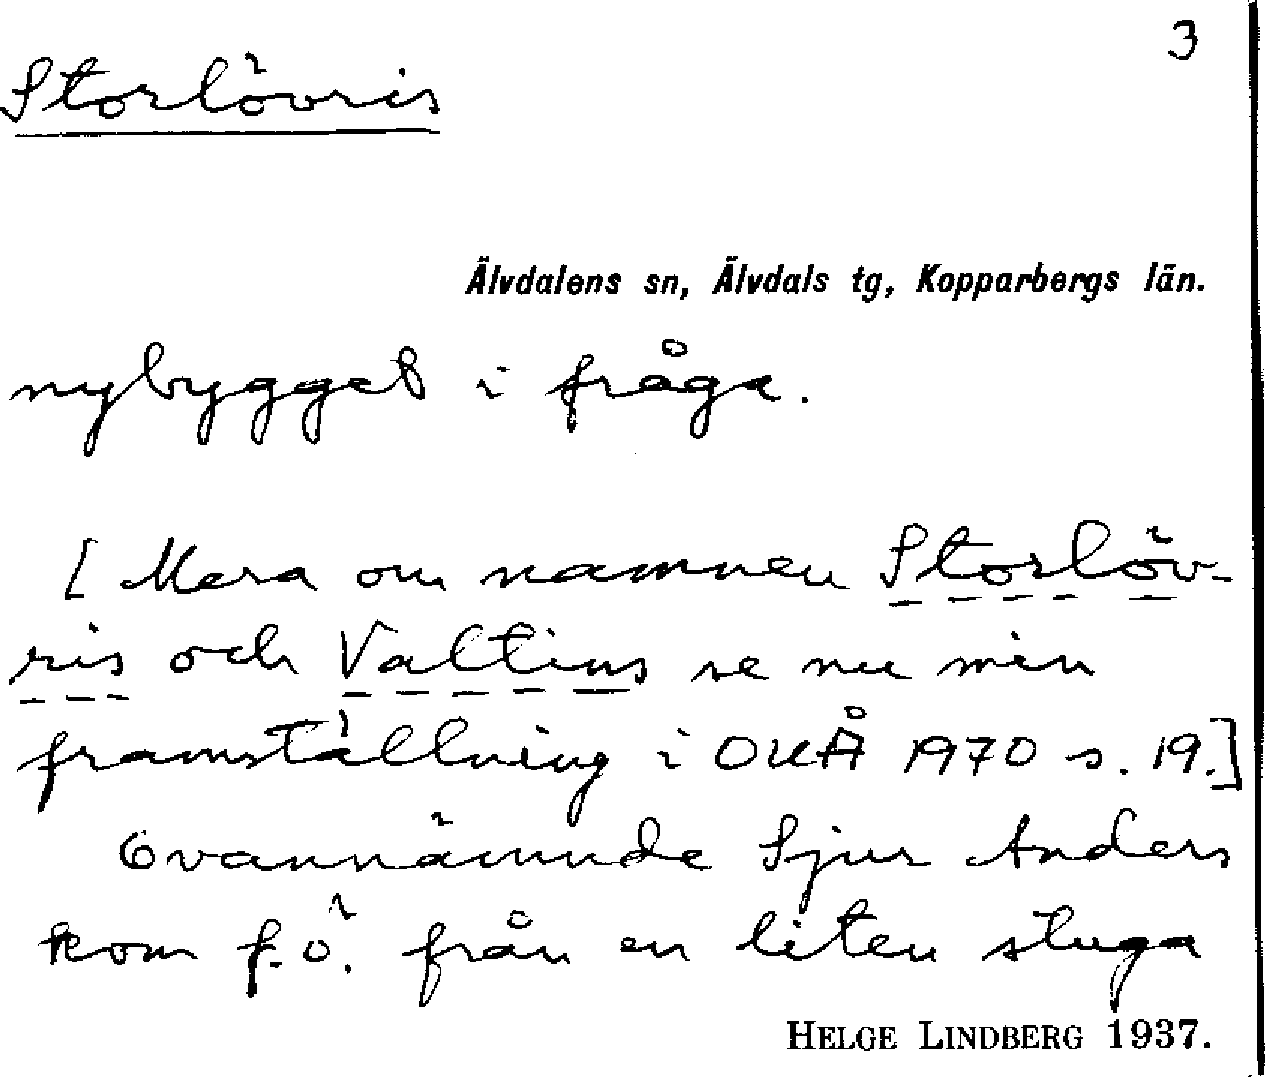 3
Storlövris
Älvdalens sn, Älvdals tg, Kopparbergs län.
nybygget i fråga.
[Mera om namnen Storlöv-
ris och Valtius se nu min
framställning i OUÅ 1970 s. 19.]
Ovannämnde Sjur Anders
kom f. ö. från en liten stuga
HELGE LINDBERG 1937.